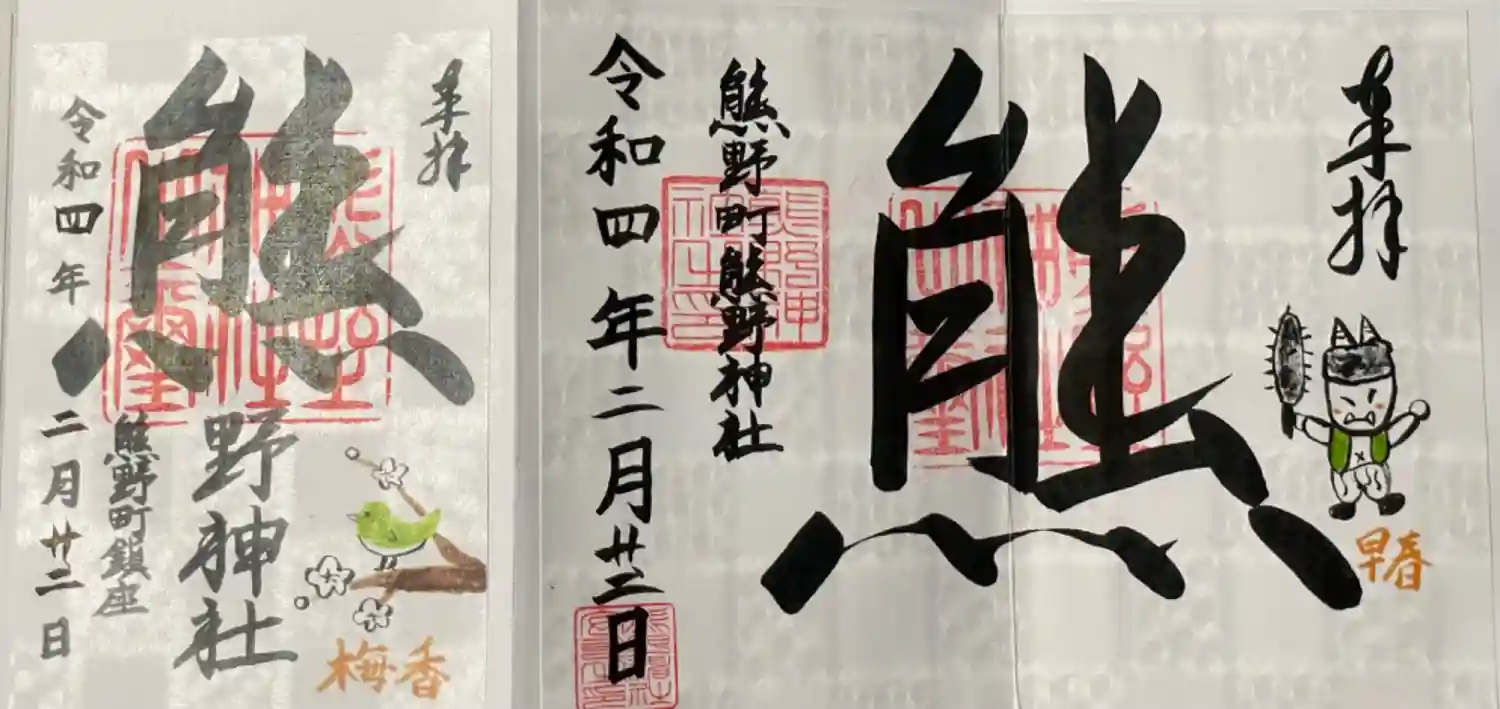 奉拝
熊野神社
熊野町鎮座
令和四年二月廿二日
梅香
奉拝
早春
熊
熊野町熊野神社
令和四年二月廿二日